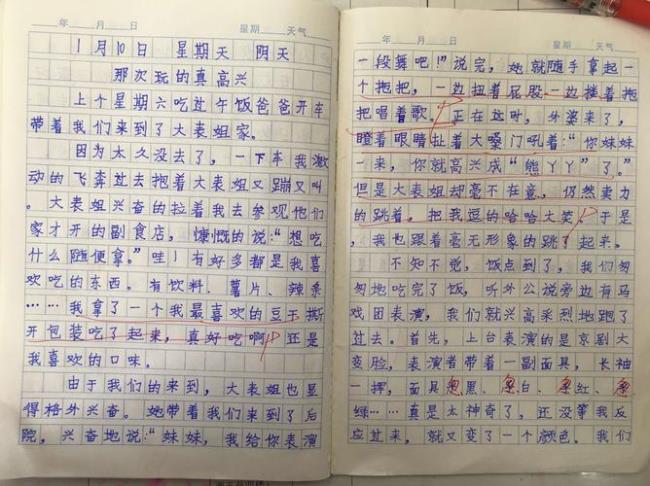 年 月 日 星期 天气
1月10日 星期天 阴天
那次玩的真高兴
上个星期六吃过午饭爸爸开车
带着我们来到了大表姐家。
因为太久没去了，一下车我激
动的飞奔过去抱着大表姐又蹦又叫
。大表姐兴奋的拉着我去参观他们
家才开的副食店，慷慨的说：“想吃
什么随便拿。”哇！有好多都是我喜
欢吃的东西。有饮料、薯片、辣条
……我拿了一个我最喜欢的豆干撕
开包装吃了起来，真好吃啊！还是
我喜欢的口味。
由于我们的来到，大表姐也显
得格外兴奋。她带着我们来到了后
院，兴奋地说：“妹妹，我给你表演
年 月 日 星期 天气
一段舞吧！”说完，她就随手拿起一
个拖把，一边扭着屁股一边搂着拖
把唱着歌。正在这时，外婆来了，
瞪着眼睛扯着大嗓门吼着：“你妹妹
一来，你就高兴成“熊丫丫”了。”
但是大表姐却毫不在意，仍然卖力
的跳着。把我逗的哈哈大笑。于是
，我也跟着毫无形象的跳了起来。
不知不觉，饭点到了，我们匆
匆地吃完了饭，听外公说旁边有马
戏团表演，我们就兴高采烈地跑了
过去。首先，上台表演的是京剧大
变脸，表演者带着一副面具，长袖
一挥，面具 黑、 白、 红、
绿……真是太神奇了，还没等我反
应过来，就又变了一个颜色。我们